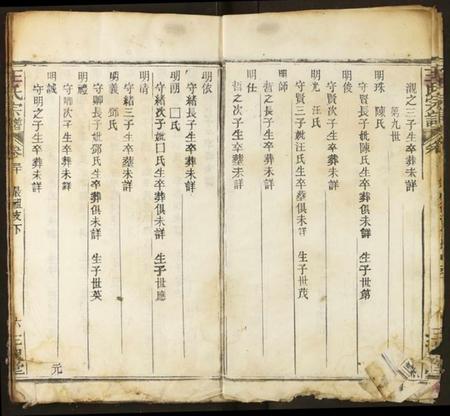 瀧之三子生卒葬未詳
第九世
明珠 陳氏
守賢長子妣陳氏生卒葬俱未詳 生子世
明俊
守賢次子生卒葬未詳
明光 汪氏
守賢三子妣汪氏生卒葬俱未詳 生子世茂
明師
哲之長子生卒葬未詳
明任
哲之次子生卒葬未詳
明依
守緒長子生卒葬未詳
明 囗氏
守緒次子妣囗氏生卒葬俱未詳 生子世應
明清
守緒三子生卒葬未詳
明義 鄧氏
守卿長子妣鄧氏生卒葬俱未詳 生子世英
明禮
守卿次子生卒葬未詳
明誠
守明之子生卒葬未詳
元
王氏宗譜 卷 下 六 三槐堂